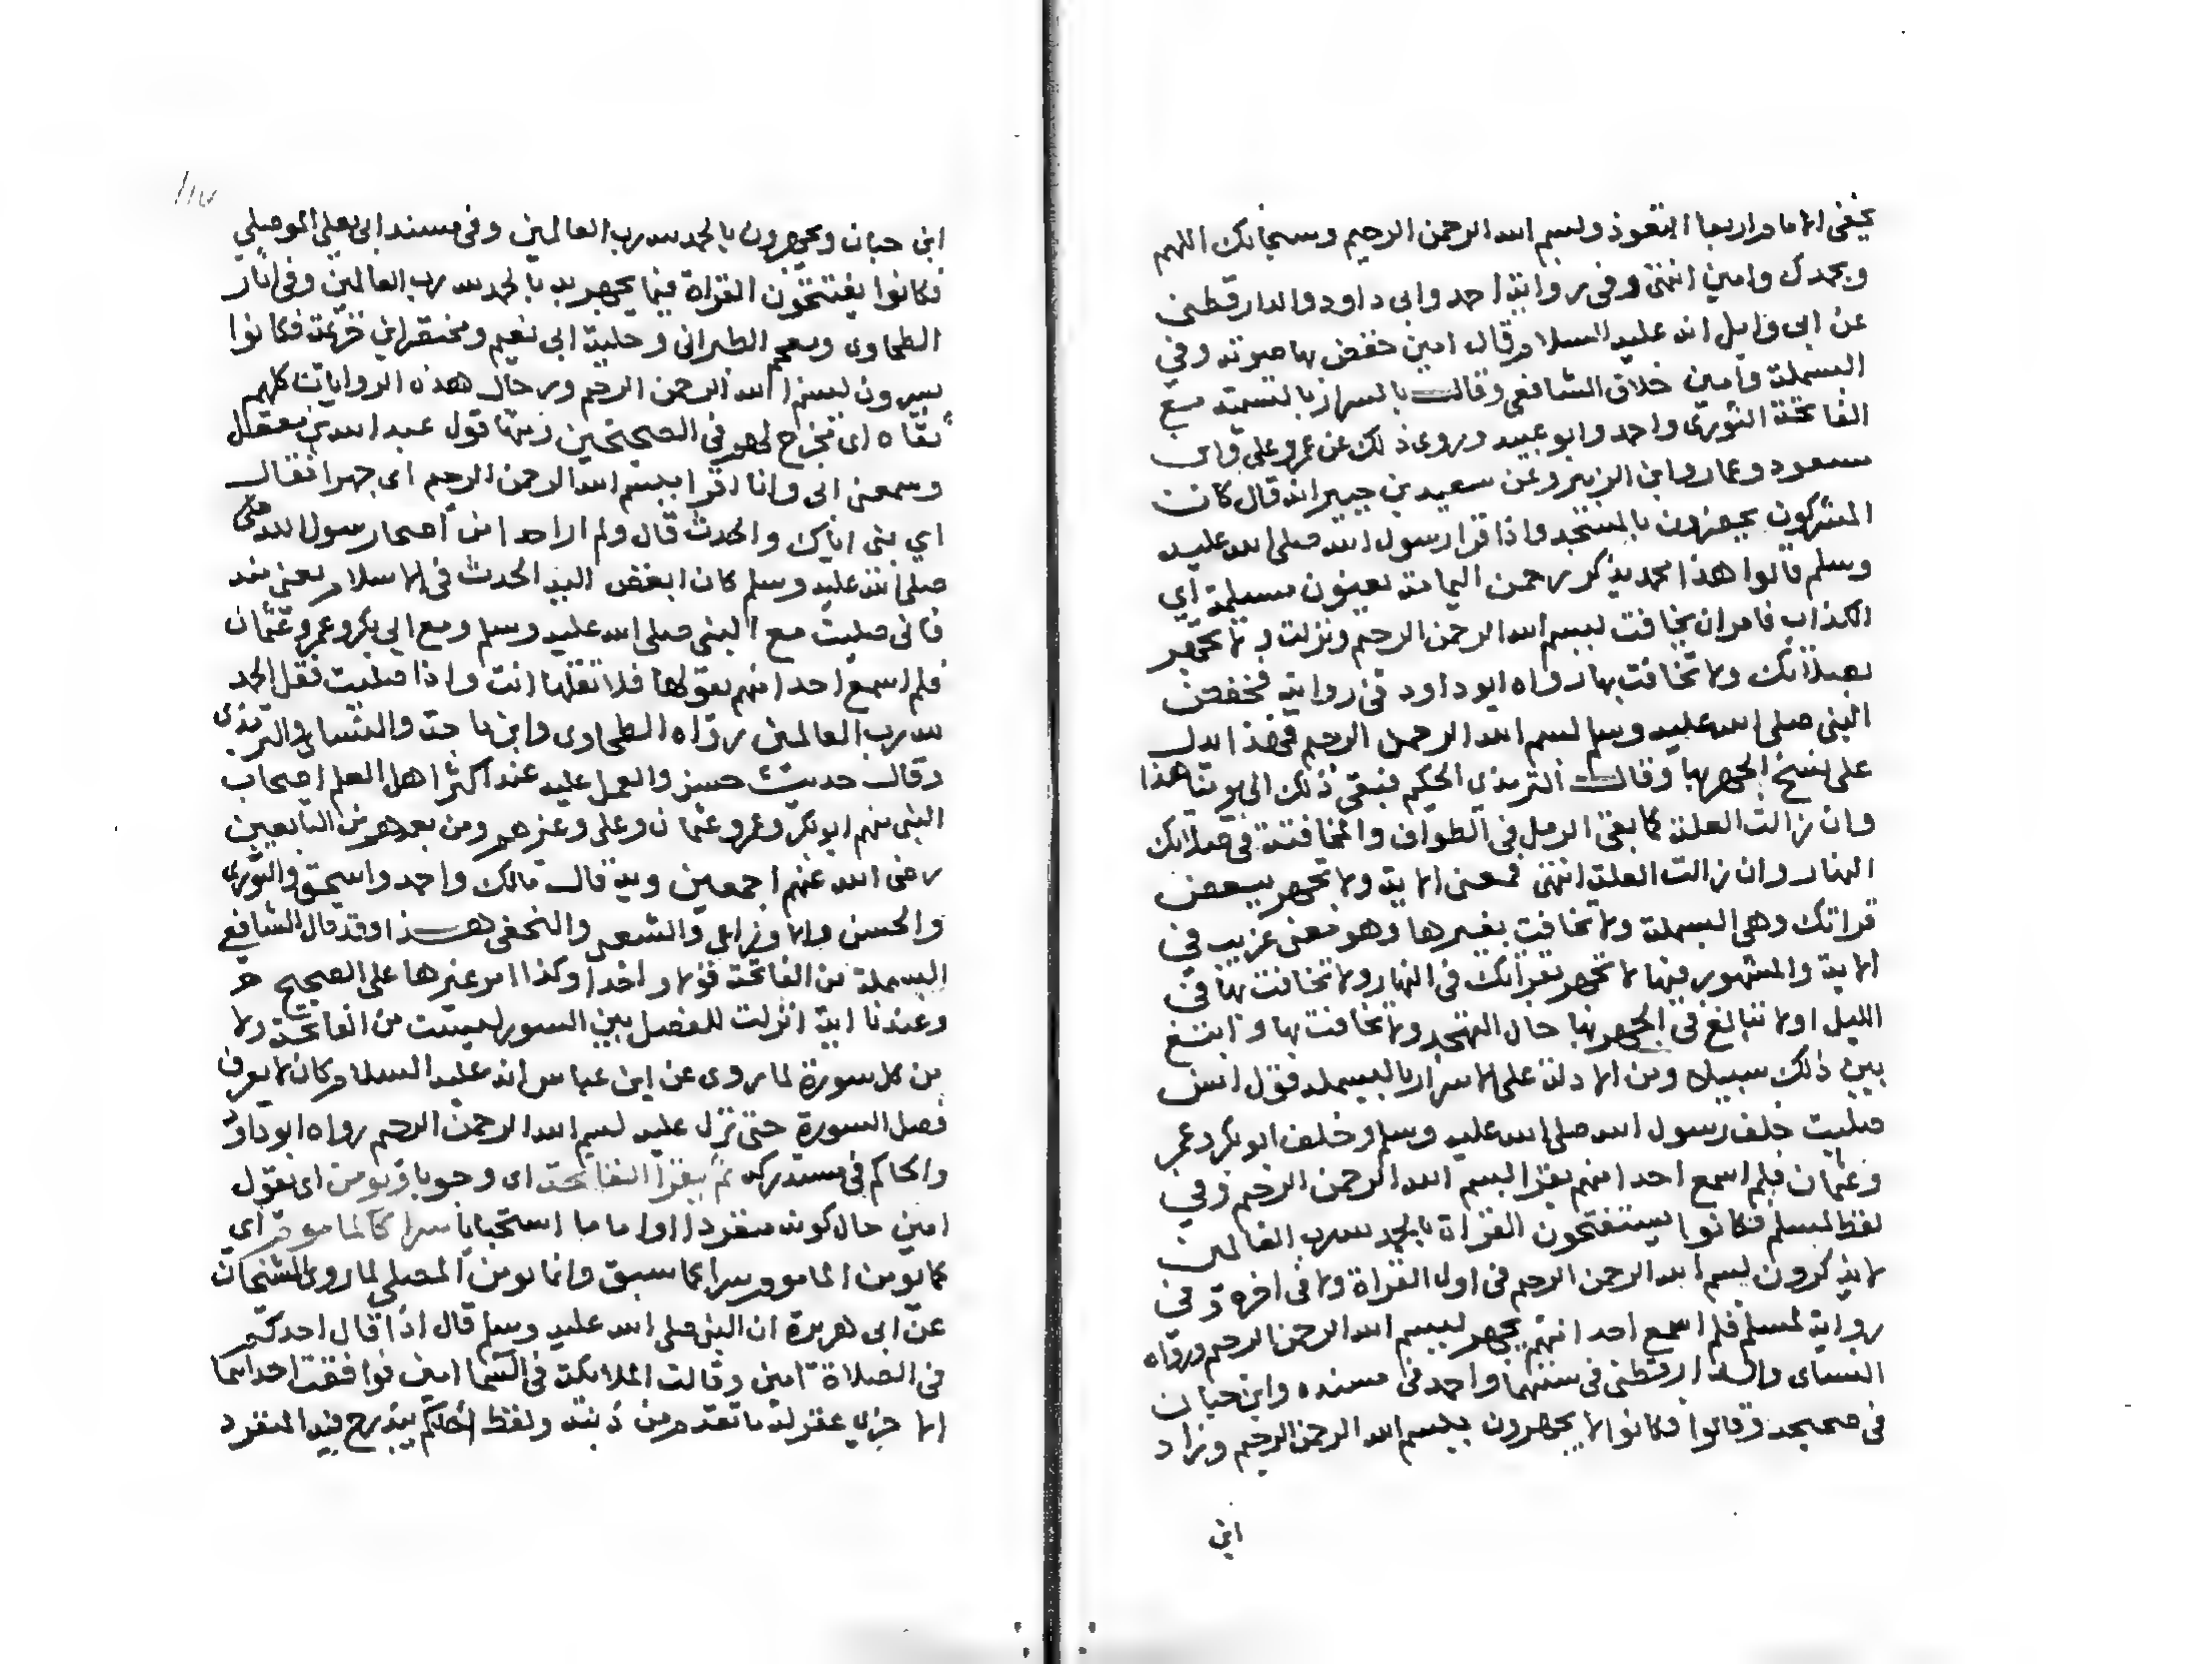 يخفى الامام اربعا التعوذ وبسم الله الرحمن الرحيم وسبحانك اللهم
وبحمدك وامين انتهى وفى رواية احمد وابى داود والدارقطنى
عن ابى وايل انه عليه السلام قال امين خفض بها صوته وفي
البسملة وامين خلاف الشافعى وقال بالاسرار بالتسمية مع
الفاتحة الثورى واحمد وابو عبيد وروى ذلك عن عمر وعلى وابن
مسعود وعمار وابن الزبير وعن سعيد بن جبير انه قال كانت
المشركون يحضرون بالمسجد واذا قرا رسول الله صلى الله عليه
وسلم قالوا هذا محمد يذكر رحمن اليمامة يعنون مسيلمة اي
الكذاب فامر ان يخافت ببسم الله الرحمن الرحيم ونزلت ولا تجهر
بصلاتك ولا تخافت بها رواه ابو داود فى رواية فخفض
النبى صلى الله عليه وسلم بسم الله الرحمن الرحيم فهذا يدل
على نسخ الجهر بها وقال الترمذى الحكيم فبقى ذلك الى يومنا هذا
وان زالت العلة كما بقى الرمل فى الطواف والمخافتة فى صلاتك
النهار وان زالت العلة انتهى فمعنى الاية ولا تجهر ببعض
قراتك وهى البسملة ولا تخافت بغيرها وهو معنى غريب فى
الاية والمشهور فيها لا تجهر بقراتك فى النهار ولا تخافت بها فى
الليل اولا تبالغ فى الجهر بها حال التهجد ولا تخافت بها وابتغ
بين ذلك سبيلا ومن الادلة على الاسرار بالبسملة قول انس
صليت خلف رسول الله صلى الله عليه وسلم وخلف ابو بكر وعمر
وعثمان فلم اسمع احدا منهم يقرا بسم الله الرحمن الرحيم وفي
لفظ لمسلم فكانوا يستفتحون القراة بالحمد لله رب العالمين
لا يذكرون بسم الله الرحمن الرحيم فى اول القراة ولا فى اخره وفى
رواية لمسلم فلم اسمع احدا منهم يجهر ببسم الله الرحمن الرحيم ورواه
النساى والدارقطنى فى سننهما واحمد فى مسنده وابن حبان
فى صحيحه وقالوا فكانوا لا يجهرون ببسم الله الرحمن الرحيم وزاد
ابن
ابن حبان ويجهرون بالحمد لله رب العالمين وفى مسند ابى يعلى الموصلي
فكانوا يفتتحون القراة فيما يجهر به بالحمد لله رب العالمين وفى اثار
الطحاوى ومعجم الطبرانى وحلية ابى نعيم ومختصر ابن خزيمة فكانوا
يسرون ببسم الله الرحمن الرحيم ورجال هذه الروايات كلهم
ثقاة اى مخرج لهم فى الصحيحين ومنها قول عبد الله بن مغفل
وسمعنى ابى وانا اقرا ببسم الله الرحمن الرحيم اى جهرا فقال
اي بنى اياك والحدث قال ولم ار احدا من اصحاب رسول الله صلى
صلى الله عليه وسلم كان ابغض اليه الحدث فى الاسلام يعنى منه
فانى صليت مع النبى صلى الله عليه وسلم ومع ابي بكر وعمر وعثمان
فلم اسمع احدا منهم يقولها فلا تقلها انت واذا صليت فقل الحمد
لله رب العالمين رواه الطحاوى وابن ماجة والنساى والترمذى
وقال حديث حسن والعمل عليه عند اكثر اهل العلم اصحاب
النبى منهم ابو بكر وعمر وعثمان وعلى وغيرهم ومن بعدهم من التابعين
رضى الله عنهم اجمعين وبه قال مالك واحمد واسحق والثورى
والحسن والاوزاعي والشعبى والنخعى هذا وقد قال الشافعي
البسملة من الفاتحة قولا واحدا وكذا من غيرها على الصحيح
وعندنا اية انزلت للفصل بين السور ليست من الفاتحة ولا
من كل سورة لما روى عن ابن عباس انه عليه السلام كان لا يعرف
فصل السورة حتى نزل عليه بسم الله الرحمن الرحيم رواه ابو داود
والحاكم فى مستدركه ثم يقرا الفاتحة اى وجوبا ويومن اى يقول
امين حال كونه منفردا او اماما استحبابا سرا كالماموم اي
كما يومن الماموم سرا كما سبق وانما يومن المصلي لما روى الشيخان
عن ابى هريرة ان النبى صلى الله عليه وسلم قال اذا قال احدكم
فى الصلاة امين وقالت الملايكة فى السما امين فوافقت احداهما
الاخرى غفر له ما تقدم من ذنبه ولفظ احدكم يندرج فيه المنفرد